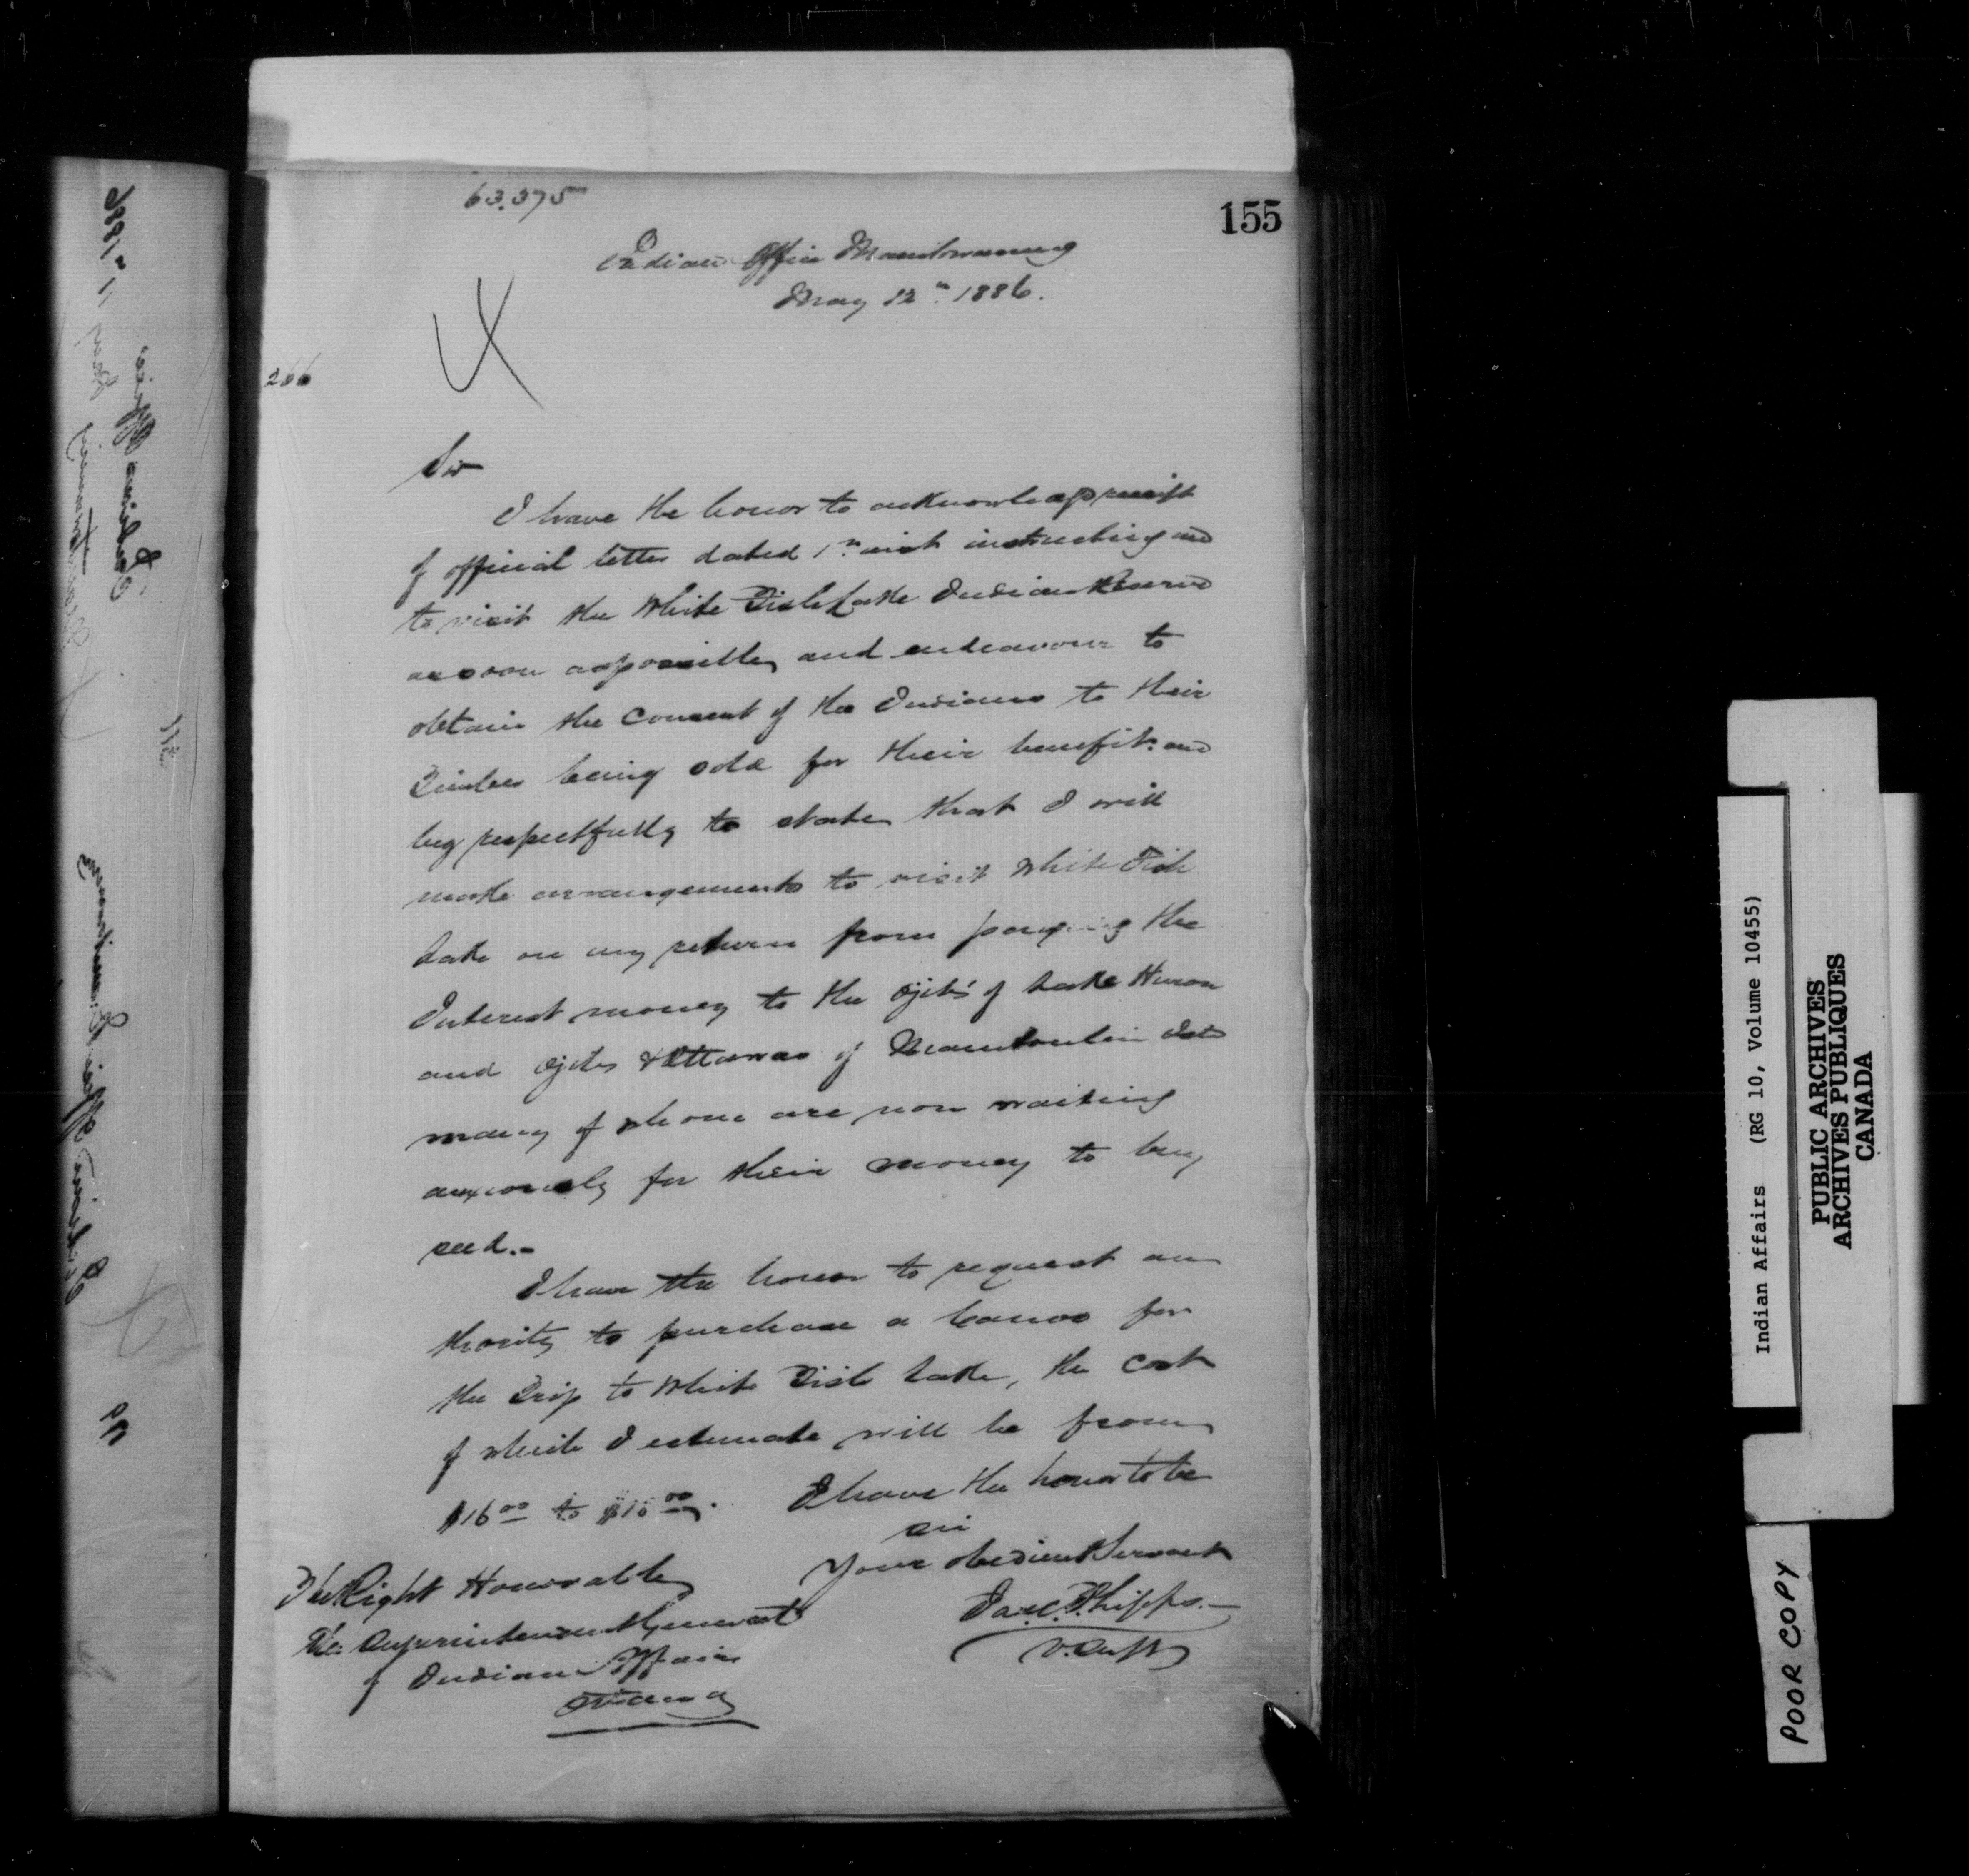 63.375
155
Indian Office Manitowaning
May 12th 1886.
266
Sir
I have the honor to acknowledge receipt
of official letter dated 1st inst instructing me
to visit the White Fish Lake Indian Reserve
as soon as possible, and endeavour to
obtain the consent of the Indians to their
Timber being sold for their benefit. and
beg respectfully to state that I will
make arrangements to visit White Fish
Lake on my return from paying the
Interest money to the Ojibs of Lake Huron
and Ojibs & Ottawas of Manitoulin Isld
many of whom are now waiting
anxiously for their money to buy
seed.-
I have the honor to request au
thority to purchase a Canoe for
the Trip to White Fish Lake, the cost
of which I estimate will be from
$16 00 to $18 00.
I have the honor to be
Sir
Your obedient Servant
Jas. C. Phipps.-
V. Supt
The Right Honorable
The Superintendent General
of Indian Affairs
Ottawa
Indian Affairs (RG 10, Volume 10455)
PUBLIC ARCHIVES
ARCHIVES PUBLIQUES
CANADA
POOR COPY